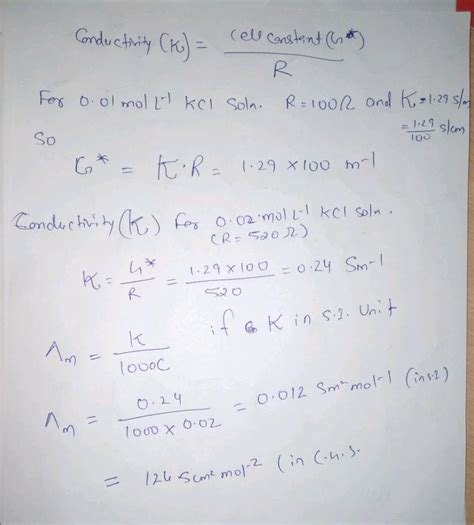 Conductivity (K) = cell constant (G*) / R
For 0.01 mol L-1 KCl soln. R = 100Ω and K = 1.29 s/m
= 1.29/100 s/cm
So
G* = K·R = 1.29 × 100 m-1
Conductivity (K) for 0.02 mol L-1 KCl soln.
(R = 520 Ω)
K = G*/R = 1.29 × 100 / 520 = 0.24 Sm-1
Λm = K / 1000C if K in S.I. Unit
Λm = 0.24 / 1000 × 0.02 = 0.012 Sm² mol-1 (in s.I)
= 124 Scm² mol-2 (in C.G.S.